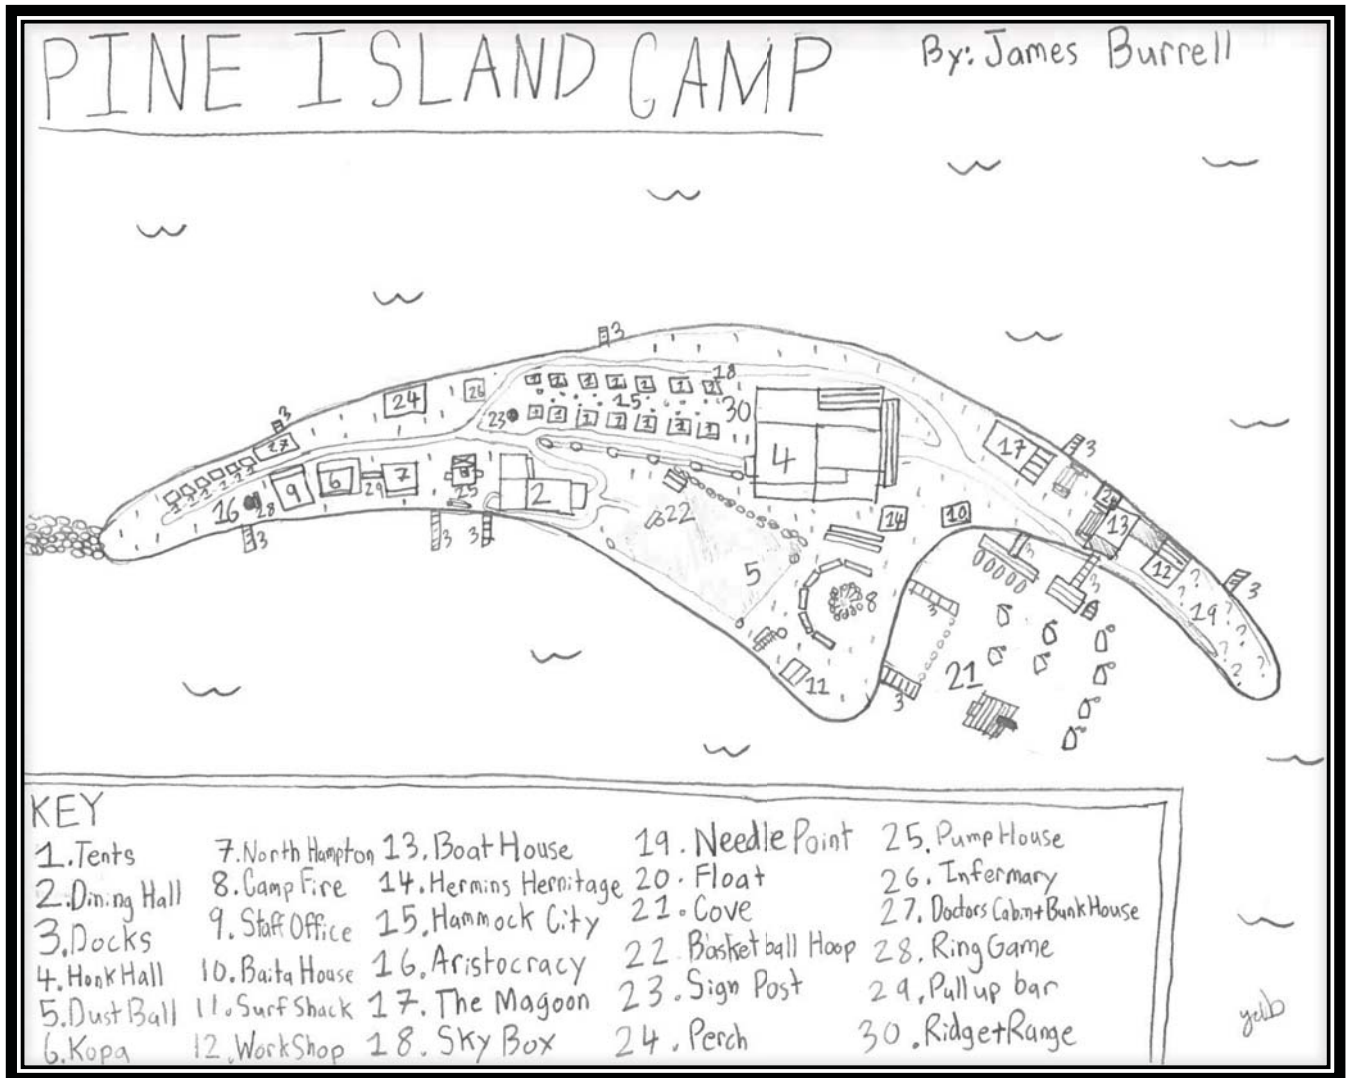 PINE ISLAND CAMP
By: James Burrell
3
18
24
26
15
30
23
3
27
17
3
4
9
6
29
7
25
2
16
28
22
14
10
13
3
3
3
5
12
3
8
3
3
19
3
11
21
3
KEY
1. Tents
2. Dining Hall
3. Docks
4. Honk Hall
5. Dust Ball
6. Kopa
7. North Hampton
8. Camp Fire
9. Staff Office
10. Baita House
11. Surf Shack
12. WorkShop
13. Boat House
14. Hermins Hernitage
15. Hammock City
16. Aristocracy
17. The Magoon
18. Sky Box
19. Needle Point
20. Float
21. Cove
22 Basket ball Hoop
23. Sign Post
24. Perch
25. Pump House
26. Infermary
27. Doctors Cabin + Bunk House
28. Ring Game
29. Pull up bar
30. Ridge + Range